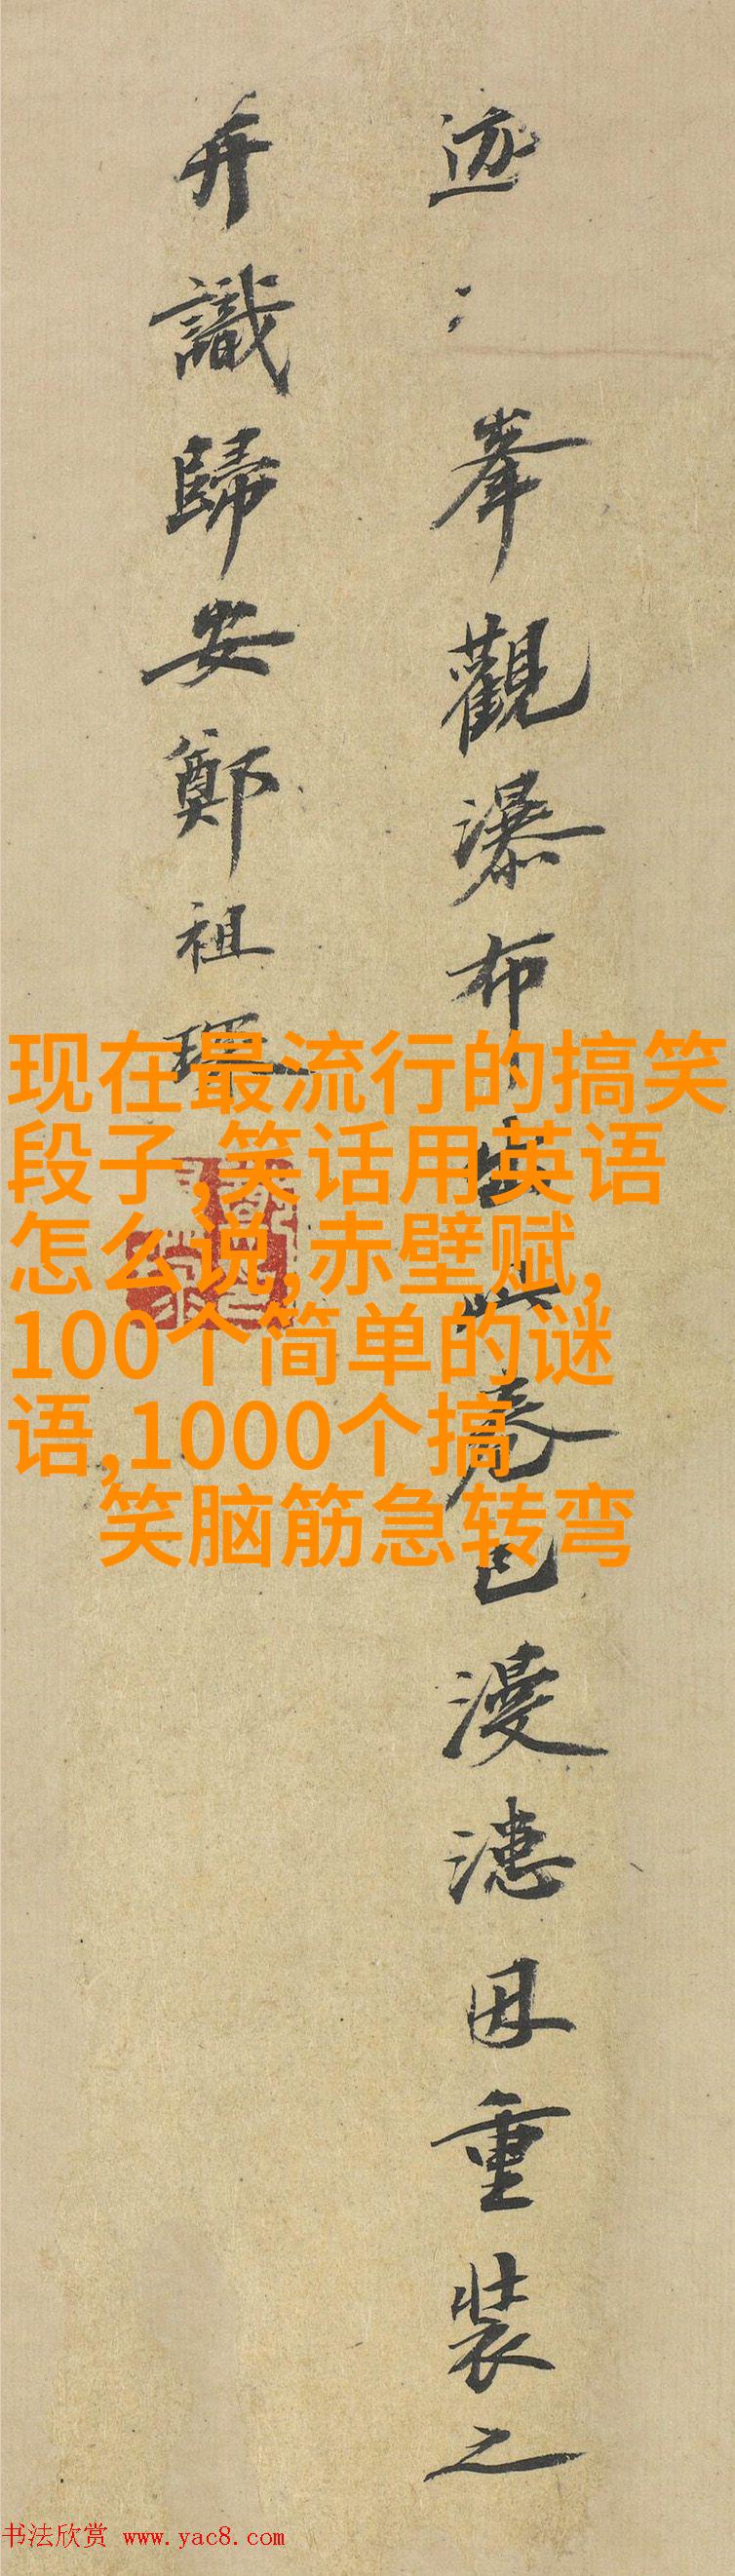 迹
峯觀瀑布
卷已漫漶因重裝之
弁識歸安鄭祖琛
现在最流行的搞笑
段子,笑话用英语
怎么说,赤壁赋,
100个简单的谜
语,1000个搞
笑脑筋急转弯
书法欣赏 www.yac8.com